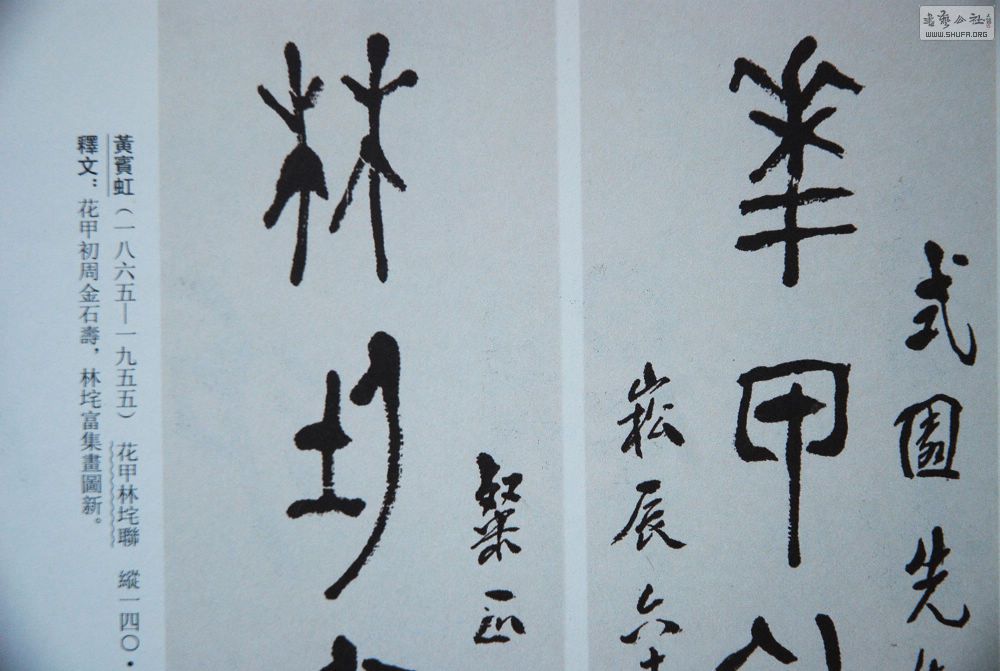 式園先
華甲
崧辰六十
林垞
粲正
黃賓虹（一八六五—一九五五） 花甲林垞聯 縱一四〇·
釋文：花甲初周金石壽，林垞富集畫圖新。
書藝公社
WWW.SHUFA.ORG